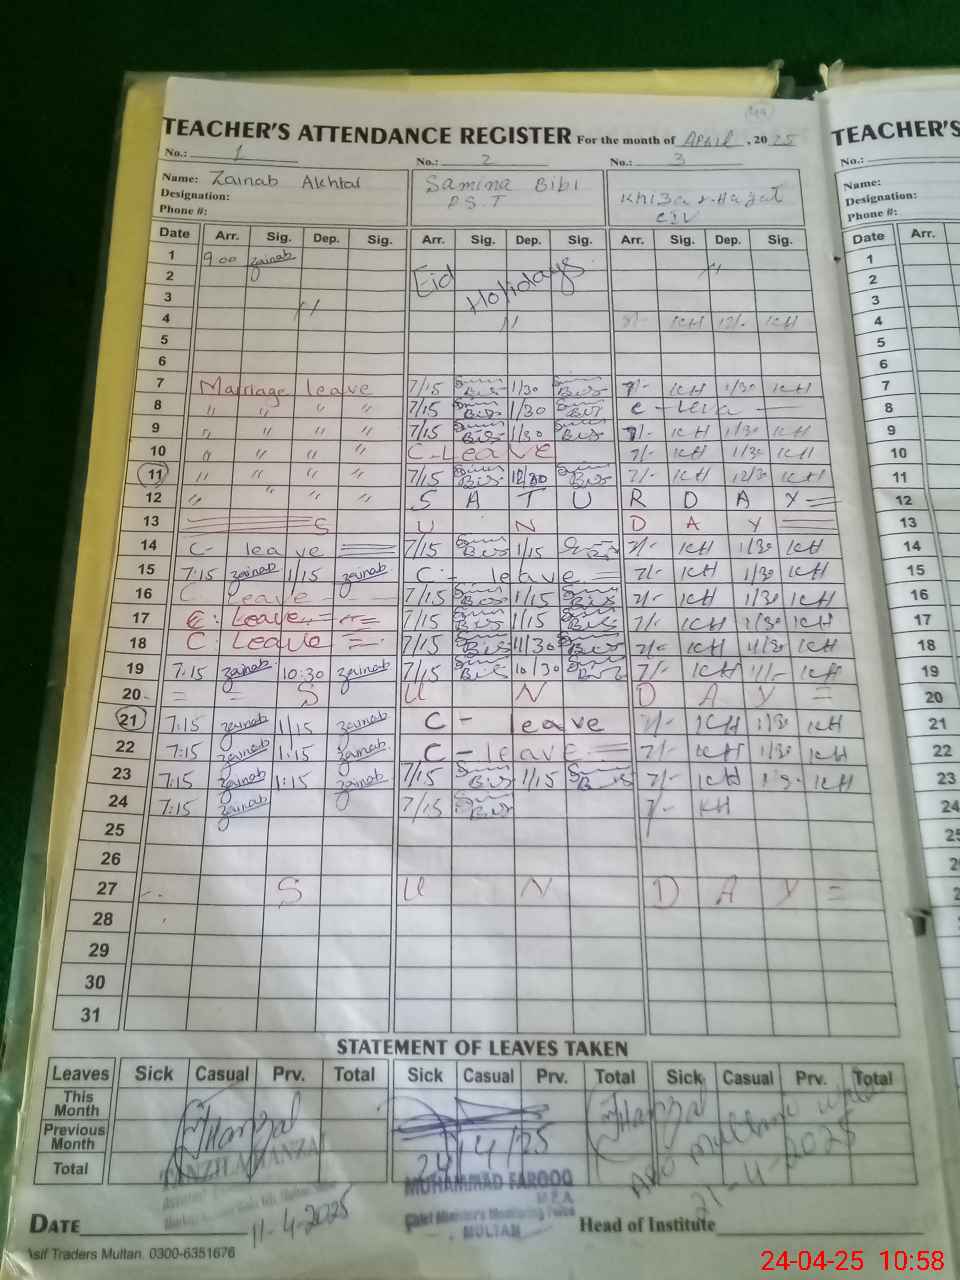 TEACHER'S ATTENDANCE REGISTER For the month of April, 2025
TEACHER'S
No.: 1 No.: 2 No.: 3
No.:
Name: Zainab Akhtar Samina Bibi
Designation: P.S.T
Phone #:
Name:
Designation:
Phone #:
Date Arr. Sig. Dep. Sig. Arr. Sig. Dep. Sig. Arr. Sig. Dep. Sig. Date Arr.
1 9 00 zainab Eid Holidays 〃 1
2 2
3 〃 3
4 〃 KH 12/- KH 4
5 5
6 6
7 Marriage leave 7/15 1/30 7/- KH 1/30 KH 7
8 〃 〃 〃 〃 7/15 1/30 C - Leva 8
9 〃 〃 〃 〃 7/15 1/30 7/- KH 1/30 KH 9
10 〃 〃 〃 〃 C-Leave 7/- KH 1/30 KH 10
11 〃 〃 〃 〃 7/15 12/30 7/- KH 12/30 KH 11
12 〃 〃 〃 〃 S A T U R D A Y 12
13 S U N D A Y 13
14 C- leave 7/15 1/15 7/- KH 1/30 KH 14
15 7:15 zainab 1/15 zainab C - leave 7/- KH 1/30 KH 15
16 C leave 7/15 1/15 7/- KH 1/30 KH 16
17 C: Leave 7/15 1/15 7/- KH 1/30 KH 17
18 C: Leave 7/15 11/30 7/- KH 11/30 KH 18
19 7:15 zainab 10:30 zainab 7/15 10/30 7/- KH 11/- KH 19
20 = = S U N D A Y = 20
21 7:15 zainab 1/15 zainab C - leave 7/- KH 1/30 KH 21
22 7:15 zainab 1:15 zainab C - leave 7/- KH 1/30 KH 22
23 7:15 zainab 1:15 zainab 7/15 1/15 7/- KH KH 23
24 7:15 zainab 7/15 7/- KH 24
25 25
26 26
27 S U N D A Y = 2
28
29
30
31
STATEMENT OF LEAVES TAKEN
Leaves Sick Casual Prv. Total Sick Casual Prv. Total Sick Casual Prv. Total
This Month
Previous Month
Total
24/4/25
MUHAMMAD FAROOQ
M.E.A
Chief Minister's Monitoring Force
MULTAN
21-4-2025
DATE 11-4-2025 Head of Institute
Asif Traders Multan. 0300-6351676
24-04-25 10:58